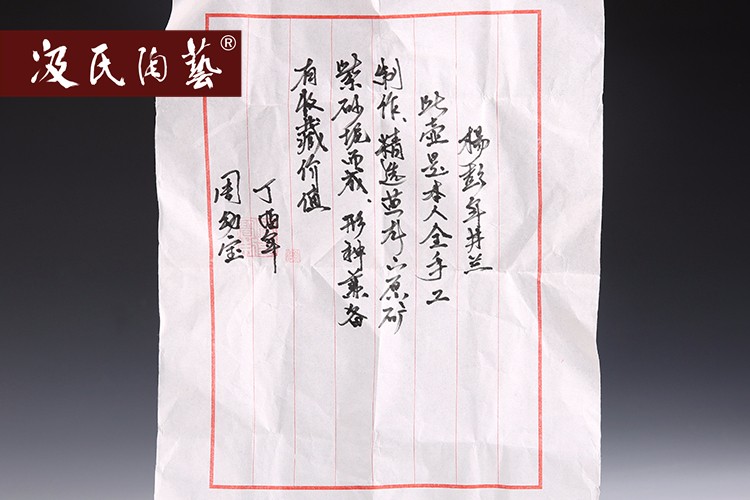 汲氏陶藝®
楊彭年井兰
此壶是本人全手工
制作、精选黄龙山原矿
紫砂泥而成、形神兼备
有收藏价值
丁酉年
周幼宝